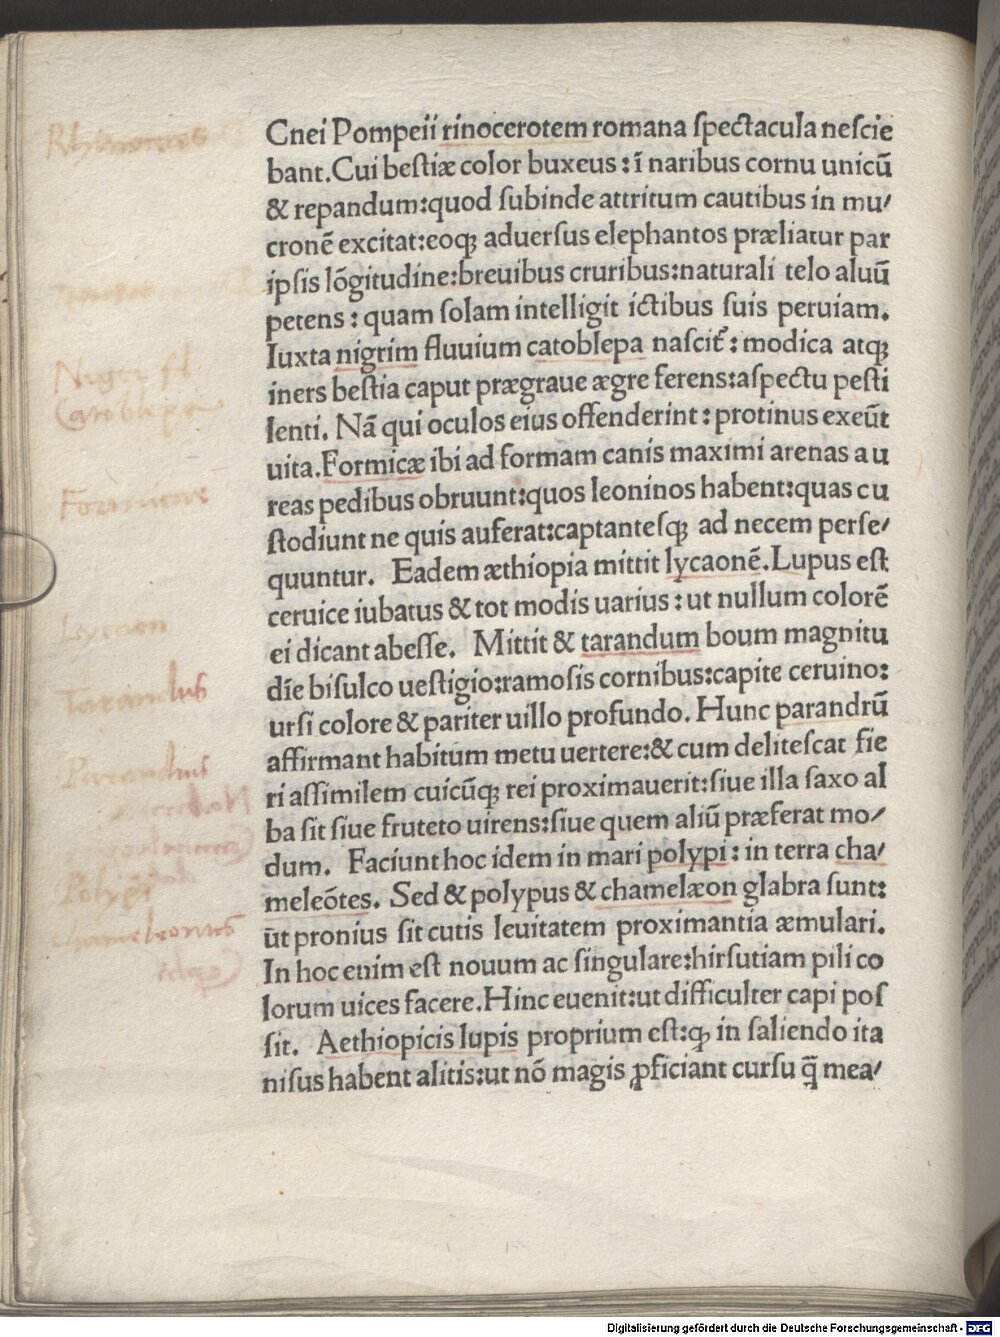 Rhinoceros
Cnei Pompeii rinocerotem romana ſpectacula neſcie
bant. Cui beſtiæ color buxeus: ī naribus cornu unicū
& repandum: quod ſubinde attritum cautibus in mu⸗
cronē excitat: eoqꝫ aduerſus elephantos præliatur par
ipſis lōgitudine: breuibus cruribus: naturali telo aluū
petens: quam ſolam intelligit ictibus ſuis peruiam.
Iuxta nigrim fluuium catoblepa naſcit᷑: modica atqꝫ
iners beſtia caput prægraue ægre ferens: aſpectu peſti
lenti. Nā qui oculos eius offenderint: protinus exeūt
uita. Formicæ ibi ad formam canis maximi arenas au
reas pedibus obruunt: quos leoninos habent: quas cu
ſtodiunt ne quis auferat: captanteſqꝫ ad necem perſe⸗
quuntur. Eadem æthiopia mittit lycaonē. Lupus eſt
ceruice iubatus & tot modis uarius: ut nullum colorē
ei dicant abeſſe. Mittit & tarandum boum magnitu
dīe biſulco ueſtigio: ramoſis cornibus: capite ceruino:
urſi colore & pariter uillo profundo. Hunc parandrū
affirmant habitum metu uertere: & cum deliteſcat fie
ri aſſimilem cuicūqꝫ rei proximauerit: ſiue illa ſaxo al
ba ſit ſiue fruteto uirens: ſiue quem aliū præferat mo⸗
dum. Faciunt hoc idem in mari polypi: in terra cha⸗
meleōtes. Sed & polypus & chamelæon glabra ſunt:
ūt pronius ſit cutis leuitatem proximantia æmulari.
In hoc enim eſt nouum ac ſingulare: hirſutiam pili co
lorum uices facere. Hinc euenit: ut difficulter capi poſ
ſit. Aethiopicis lupis proprium eſt: ꝙ in ſaliendo ita
niſus habent alitis: ut nō magis ꝓficiant curſu q̄ mea⸗
Niger fl
Catoblepa
Formicae
Lycaon
Tarandus
Parandrus
Polypi
Chameleontes
Digitalisierung gefördert durch die Deutsche Forschungsgemeinschaft - DFG